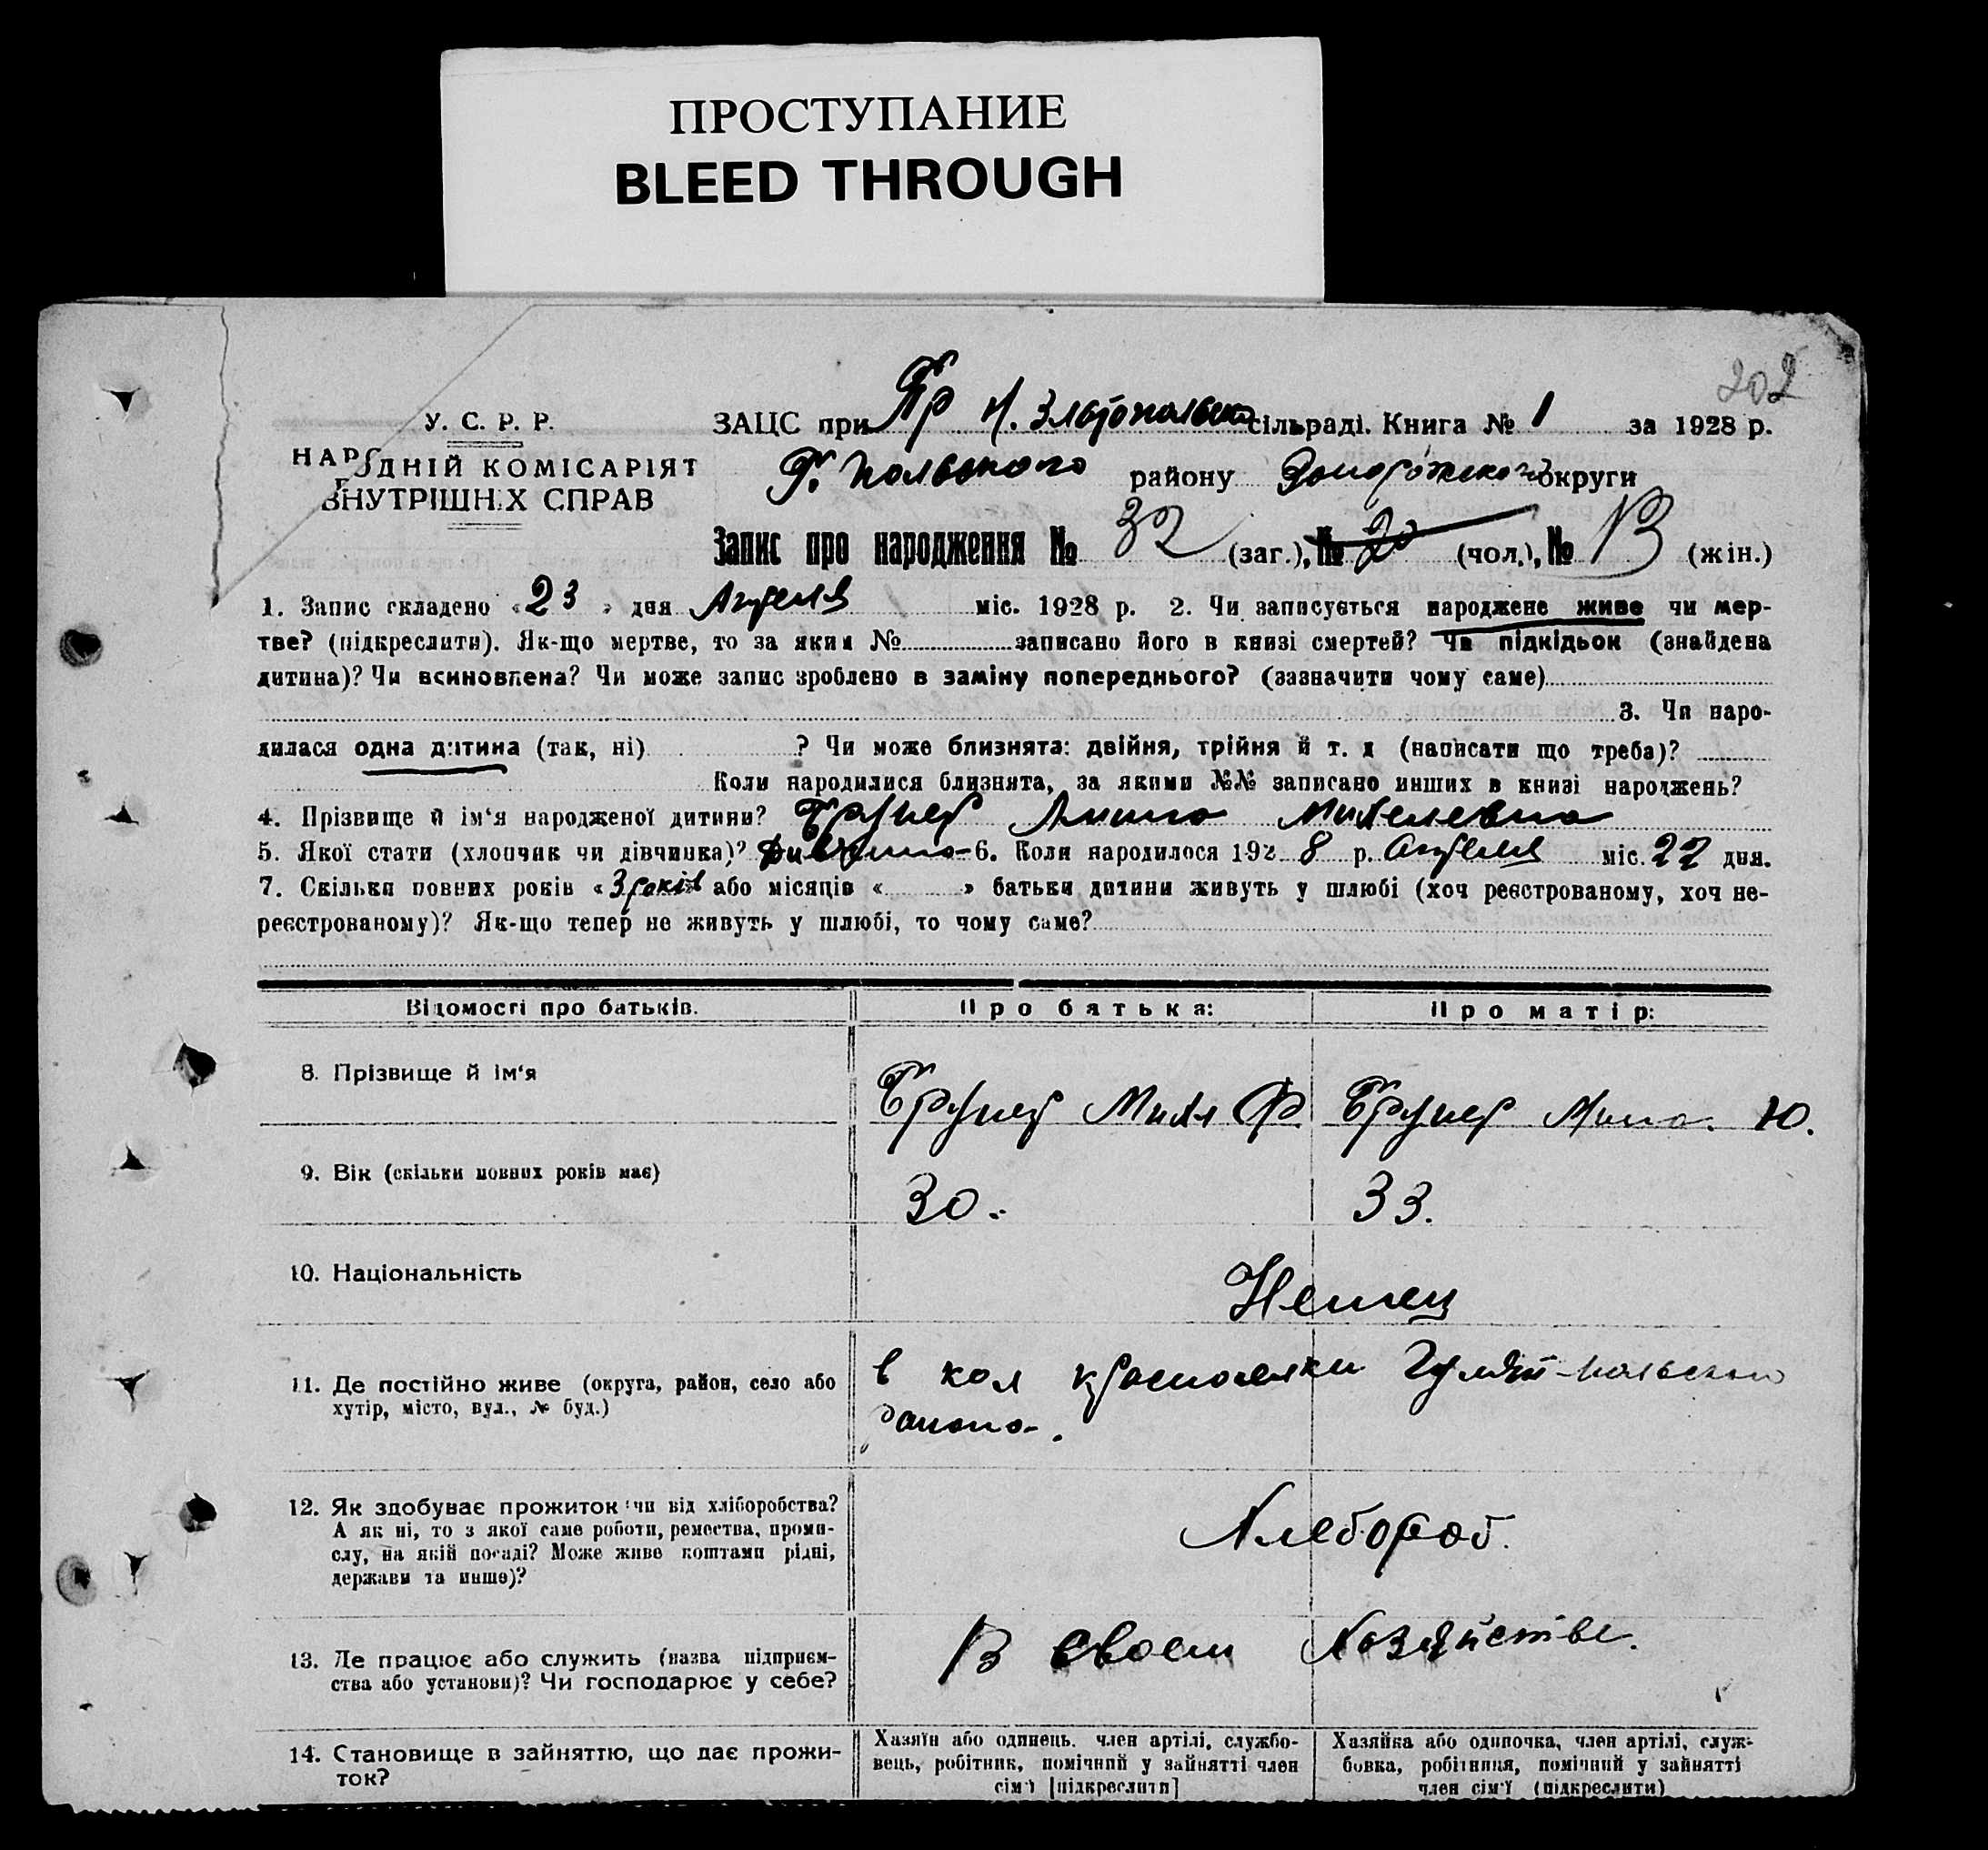 ПРОСТУПАНИЕ
BLEED THROUGH
202
У. С. Р. Р.
НАРОДНІЙ КОМІСАРІЯТ
ВНУТРІШНІХ СПРАВ
ЗАЦС при сільраді. Книга № 1 за 1928 р.
Г. Польского району округи
Запис про народження № 32 (заг.), № 20 (чол.), № 13 (жін.)
1. Запис складено «23» дня Апреля міс. 1928 р. 2. Чи записується народжене живе чи мер-
тве? (підкреслити). Як-що мертве, то за яким № записано його в книзі смертей? Чи підкідьок (знайдена
дитина)? Чи всиновлена? Чи може запис зроблено в заміну попереднього? (зазначити чому саме)
3. Чи наро-
дилася одна дитина (так, ні) ? Чи може близнята: двійня, трійня й т. д (написати що треба)?
Коли народилися близнята, за якими №№ записано инших в книзі народжень?
4. Прізвище й ім'я народженої дитини?
5. Якої стати (хлопчик чи дівчинка)? 6. Коли народилося 192 8 р. Апреля міс. 22 дня.
7. Скільки повних років «3 років» або місяців « » батьки дитини живуть у шлюбі (хоч реєстрованому, хоч не-
реєстрованому)? Як-що тепер не живуть у шлюбі, то чому саме?
Відомості про батьків. Про батька: Про матір:
8. Прізвище й ім'я
9. Вік (скільки повних років має) 30. 33.
10. Національність Немец
11. Де постійно живе (округа, район, село або
хутір, місто, вул., № буд.)
в кол Гуляй-Польского
района.
12. Як здобуває прожиток чи від хліборобства?
А як ні, то з якої саме роботи, ремества, проми-
слу, на якій посаді? Може живе коштами рідні,
держави та инше)?
Хлебороб.
13. Де працює або служить (назва підприєм-
ства або установи)? Чи господарює у себе?
В своем хозяйстве.
14. Становище в зайняттю, що дає прожи-
ток?
Хазяїн або одинець. член артілі, службо-
вець, робітник, помічний у зайнятті член
сім'ї [підкреслити]
Хазяйка або одиночка, член артілі, служ-
бовка, робітниця, помічний у зайнятті
член сім'ї (підкреслити)